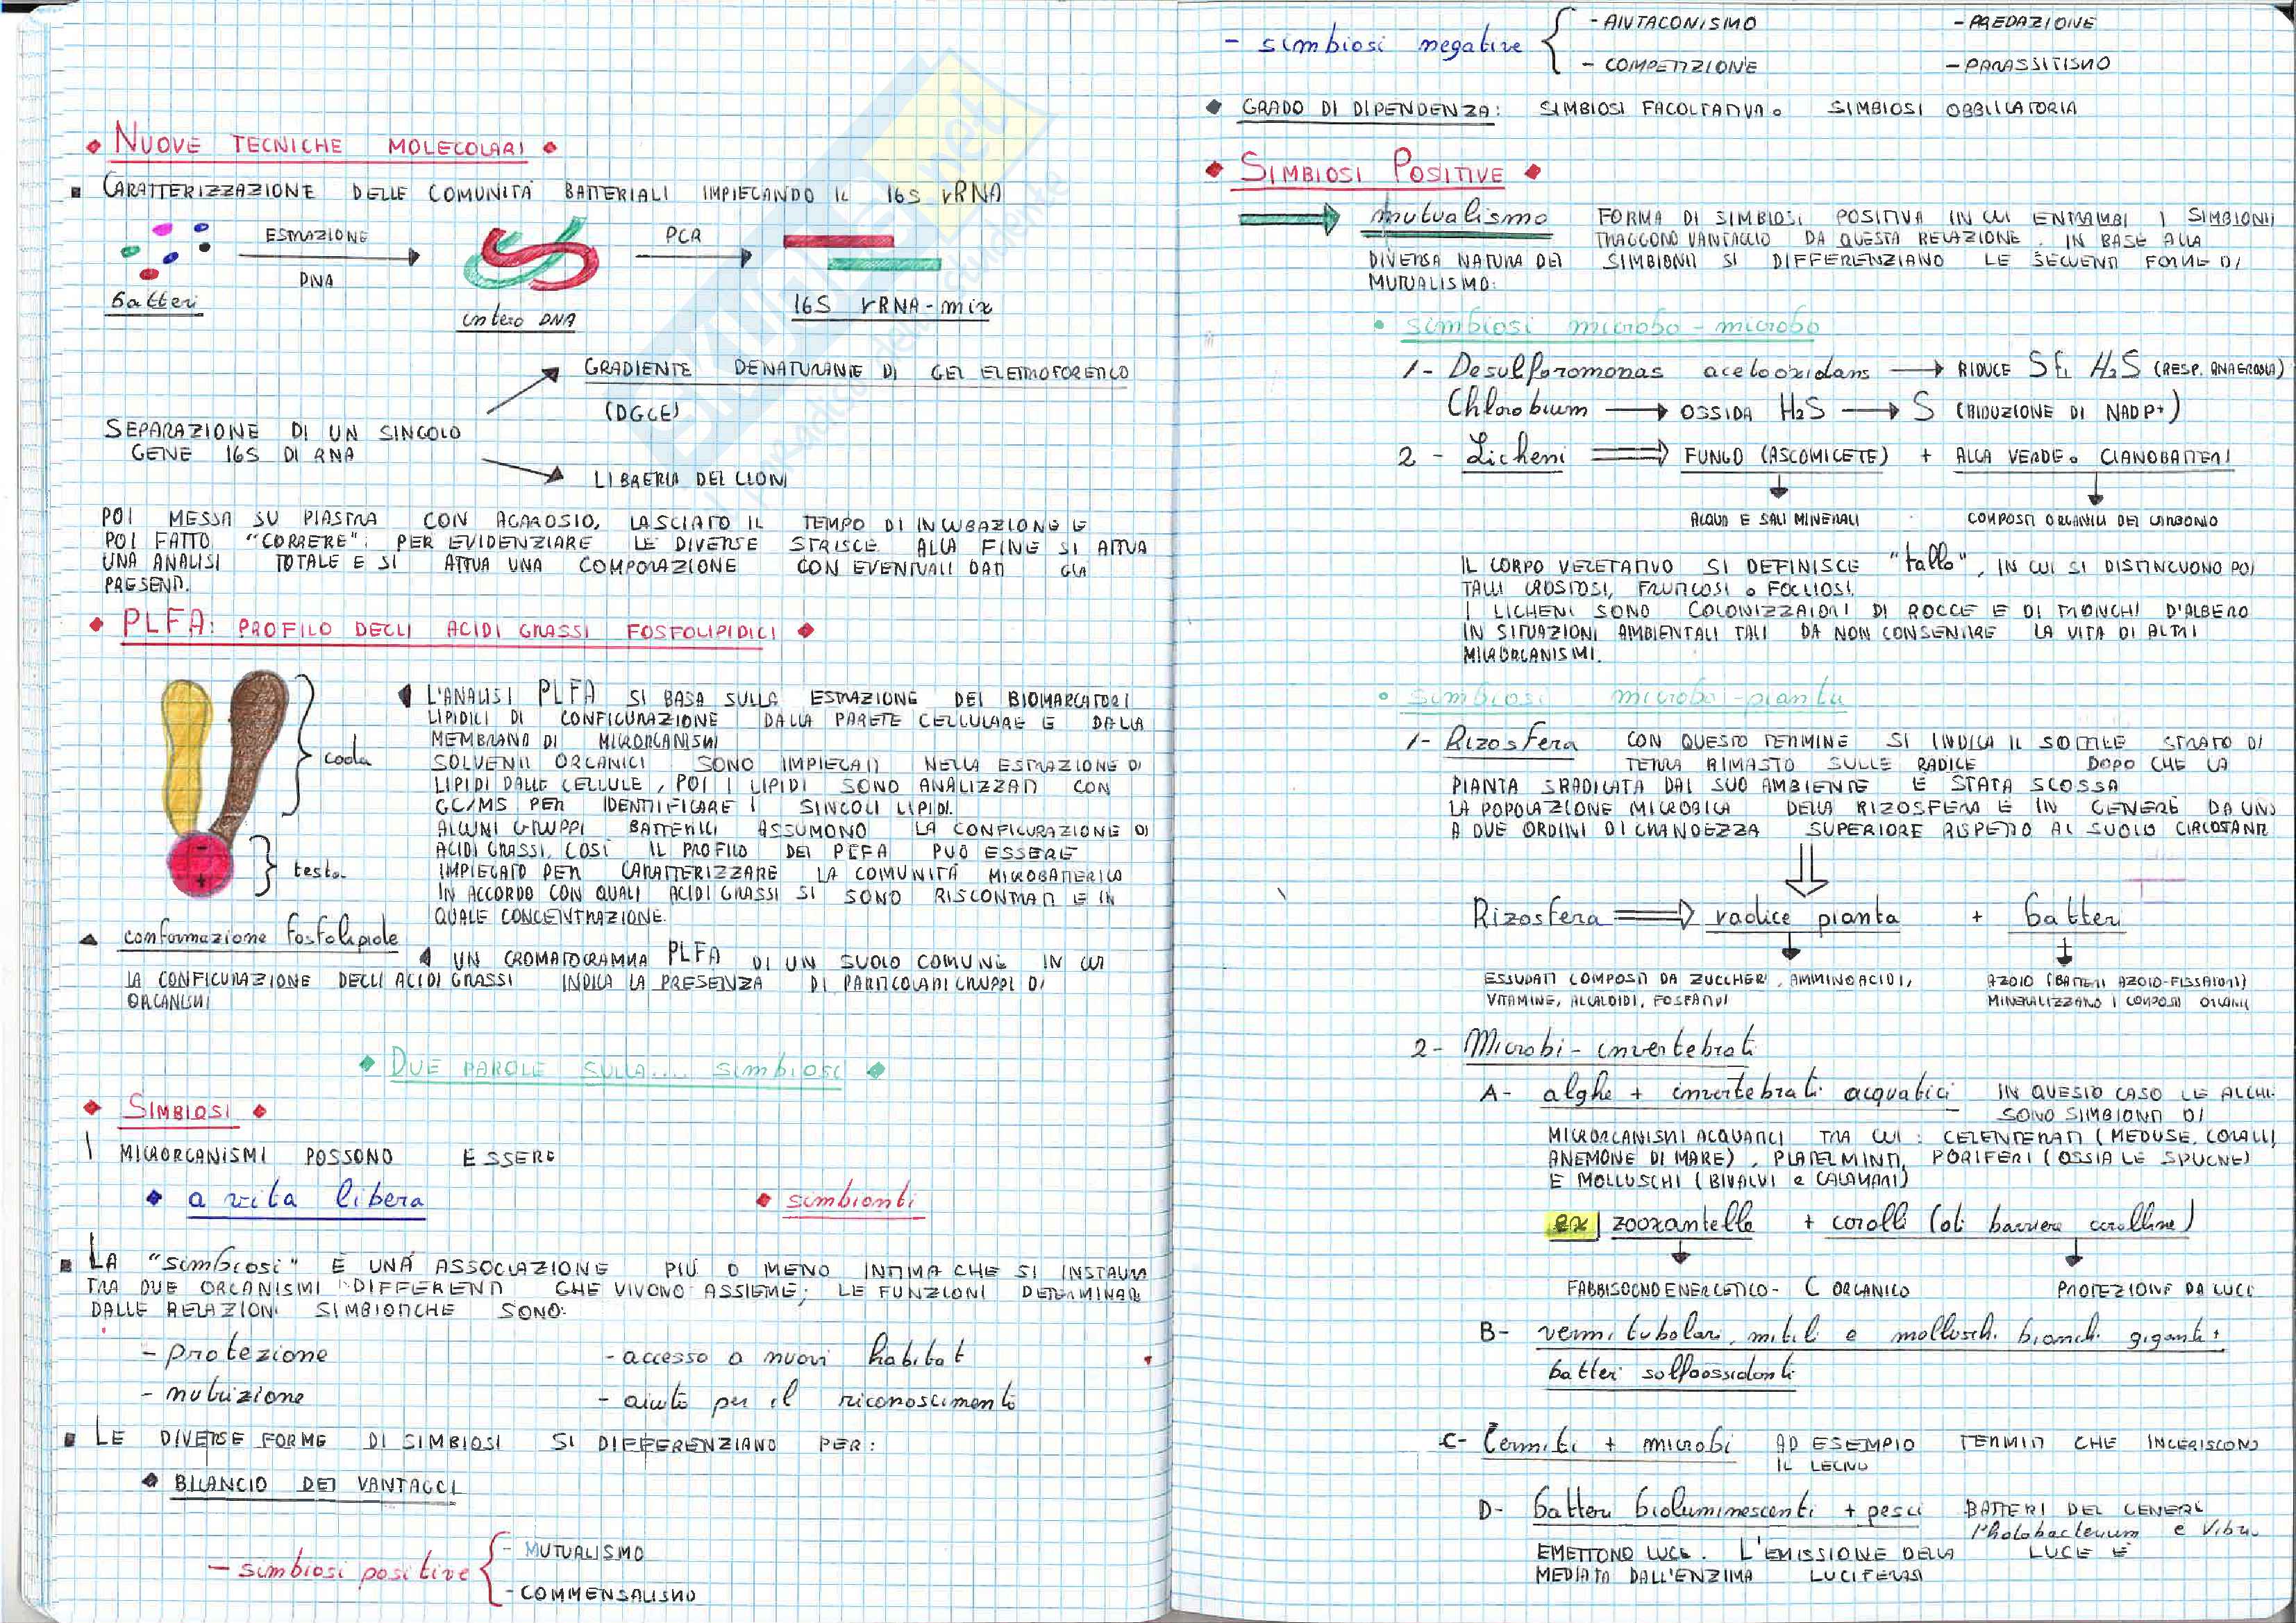 • NUOVE TECNICHE MOLECOLARI •
▪ CARATTERIZZAZIONE DELLE COMUNITÀ BATTERIALI IMPIEGANDO IL 16S rRNA
batteri
ESTRAZIONE
DNA
intero DNA
PCR
16S rRNA-mix
SEPARAZIONE DI UN SINGOLO
GENE 16S DI RNA
GRADIENTE DENATURANTE DI GEL ELETTROFORETICO
(DGGE)
LIBRERIA DEI CLONI
POI MESSA SU PIASTRA CON AGAROSIO, LASCIATO IL TEMPO DI INCUBAZIONE E
POI FATTO "CORRERE". PER EVIDENZIARE LE DIVERSE STRISCE ALLA FINE SI ATTUA
UNA ANALISI TOTALE E SI ATTUA UNA COMPORAZIONE CON EVENTUALI DATI GIA
PRESENTI.
• PLFA: PROFILO DEGLI ACIDI GRASSI FOSFOLIPIDICI •
coda
testa
▲ conformazione fosfolipide
L'ANALISI PLFA SI BASA SULLA ESTRAZIONE DEI BIOMARCATORI
LIPIDICI DI CONFIGURAZIONE DALLA PARETE CELLULARE E DALLA
MEMBRANA DI MICRORGANISMI
SOLVENTI ORGANICI SONO IMPIEGATI NELLA ESTRAZIONE DI
LIPIDI DALLE CELLULE, POI I LIPIDI SONO ANALIZZATI CON
GC/MS PER IDENTIFICARE I SINGOLI LIPIDI.
ALCUNI GRUPPI BATTERICI ASSUMONO LA CONFIGURAZIONE DI
ACIDI GRASSI, COSÌ IL PROFILO DEI PLFA PUÒ ESSERE
IMPIEGATO PER CARATTERIZZARE LA COMUNITÀ MICROBATTERICA
IN ACCORDO CON QUALI ACIDI GRASSI SI SONO RISCONTRATI E IN
QUALE CONCENTRAZIONE.
UN CROMATOGRAMMA PLFA DI UN SUOLO COMUNE IN CUI
LA CONFIGURAZIONE DEGLI ACIDI GRASSI INDICA LA PRESENZA DI PARTICOLARI GRUPPI DI
ORGANISMI
• DUE PAROLE SULLA.... simbiosi •
• SIMBIOSI •
I MICRORGANISMI POSSONO ESSERE
• a vita libera
• simbionti
▪ LA "simbiosi" È UNA ASSOCIAZIONE PIÙ O MENO INTIMA CHE SI INSTAURA
TRA DUE ORGANISMI DIFFERENTI CHE VIVONO ASSIEME; LE FUNZIONI DETERMINATE
DALLE RELAZIONI SIMBIOTICHE SONO:
- protezione
- accesso a nuovi habitat
- nutrizione
- aiuto per il riconoscimento
▪ LE DIVERSE FORME DI SIMBIOSI SI DIFFERENZIANO PER:
• BILANCIO DEI VANTAGGI
- simbiosi positive
- MUTUALISMO
- COMMENSALISMO
- simbiosi negative
- ANTAGONISMO
- PREDAZIONE
- COMPETIZIONE
- PARASSITISMO
◆ GRADO DI DIPENDENZA: SIMBIOSI FACOLTATIVA o SIMBIOSI OBBLIGATORIA
• SIMBIOSI POSITIVE •
mutualismo FORMA DI SIMBIOSI POSITIVA IN CUI ENTRAMBI I SIMBIONTI
TRAGGONO VANTAGGIO DA QUESTA RELAZIONE. IN BASE ALLA
DIVERSA NATURA DEI SIMBIONTI SI DIFFERENZIANO LE SEGUENTI FORME DI
MUTUALISMO:
• simbiosi microbo-microbo
1- Desulforomonas acetooxidans → RIDUCE S H₂S (RESP. ANAEROBIA)
Chlorobium → OSSIDA H₂S → S (RIDUZIONE DI NADP+)
2- Licheni ⇒ FUNGO (ASCOMICETE) + ALGA VERDE o CIANOBATTERI
ACQUA E SALI MINERALI
COMPOSTI ORGANICI DEL CARBONIO
IL CORPO VEGETATIVO SI DEFINISCE "tallo", IN CUI SI DISTINGUONO POI
TALLI CROSTOSI, FRUTICOSI o FOGLIOSI.
I LICHENI SONO COLONIZZATORI DI ROCCE E DI TRONCHI D'ALBERO
IN SITUAZIONI AMBIENTALI TALI DA NON CONSENTIRE LA VITA DI ALTRI
MICRORGANISMI.
• simbiosi microbo-pianta
1- Rizosfera CON QUESTO TERMINE SI INDICA IL SOTTILE STRATO DI
TERRA RIMASTO SULLE RADICE DOPO CHE LA
PIANTA SRADICATA DAL SUO AMBIENTE È STATA SCOSSA
LA POPOLAZIONE MICROBICA DELLA RIZOSFERA È IN GENERE DA UNO
A DUE ORDINI DI GRANDEZZA SUPERIORE RISPETTO AL SUOLO CIRCOSTANTE
Rizosfera ⇒ radice pianta + batteri
ESSUDATI COMPOSTI DA ZUCCHERI, AMMINOACIDI,
VITAMINE, ALCALOIDI, FOSFATIDI
AZOTO (BATTERI AZOTO-FISSATORI)
MINERALIZZANO I COMPOSTI ORGANICI
2- Microbi-invertebrati
A- alghe + invertebrati acquatici IN QUESTO CASO LE ALGHE
SONO SIMBIONTI DI
MICRORGANISMI ACQUATICI TRA CUI: CELENTERATI (MEDUSE, CORALLI,
ANEMONE DI MARE), PLATELMINTI, PORIFERI (OSSIA LE SPUGNE)
E MOLLUSCHI (BIVALVI e CALAMARI)
ex zooxantelle + coralli (di barriere coralline)
FABBISOGNO ENERGETICO - C ORGANICO
PROTEZIONE DA LUCE
B- vermi tubolari, mitili e molluschi bianchi giganti +
batteri solfoossidanti
C- Termiti + microbi AD ESEMPIO TERMITI CHE INGERISCONO
IL LEGNO
D- batteri bioluminescenti + pesci BATTERI DEL GENERE
Photobacterium e Vibrio
EMETTONO LUCE. L'EMISSIONE DELLA LUCE È
MEDIATA DALL'ENZIMA LUCIFERASI